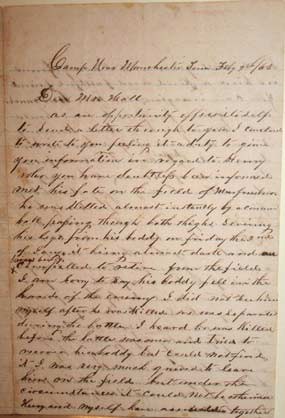 Camp Near Manchester Tenn Feby 2nd /63
Dear Mrs Hall
as an opportunity affords itself
to send a letter through to you I conclude
to write to you feeling it a duty to give
you information in regard to Henry
who you have doubtless been informed
met his fate on the field of Murfreesboro
he was killed almost instantly by a cannon
ball passing though both thighs severing
his legs from his boddy on friday the 2nd
of Jany it being almost dark and our
compelled to retire from the field
I am sorry to say his boddy fell in the
hands of the enemy I did not see him
myself after he was killed we was separated
during the battle I heard he was killed
before the battle was over and tried to
recover his boddy but could not find
it I was very much grieved to leave
him on the field but under the
circumstances it could not be otherwise
Henry and myself have together